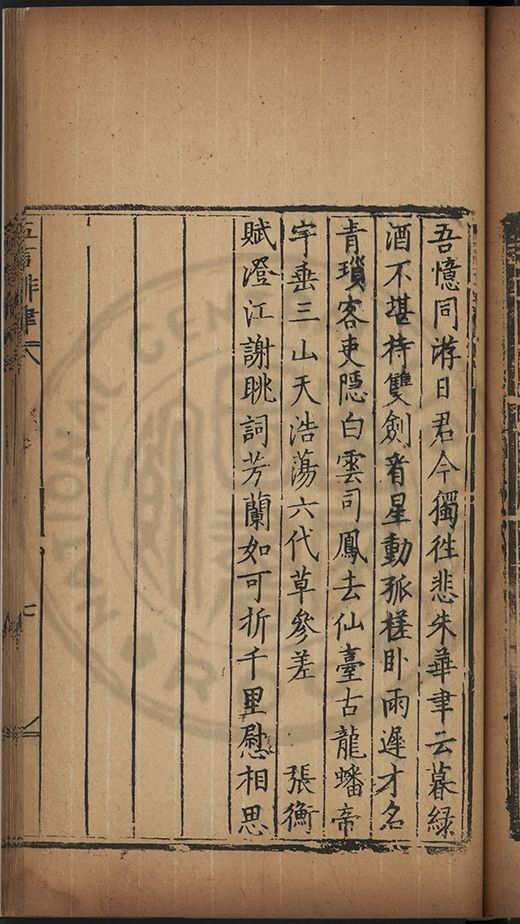 吾憶同游日君今獨徃悲朱華聿云暮綠
酒不堪持雙劍看星動孤槎卧雨遲才名
青瑣客吏隱白雲司鳳去仙臺古龍蟠帝
宇垂三山天浩蕩六代草參差 張衡
賦澄江謝眺詞芳蘭如可折千里慰相思
五言排律
七